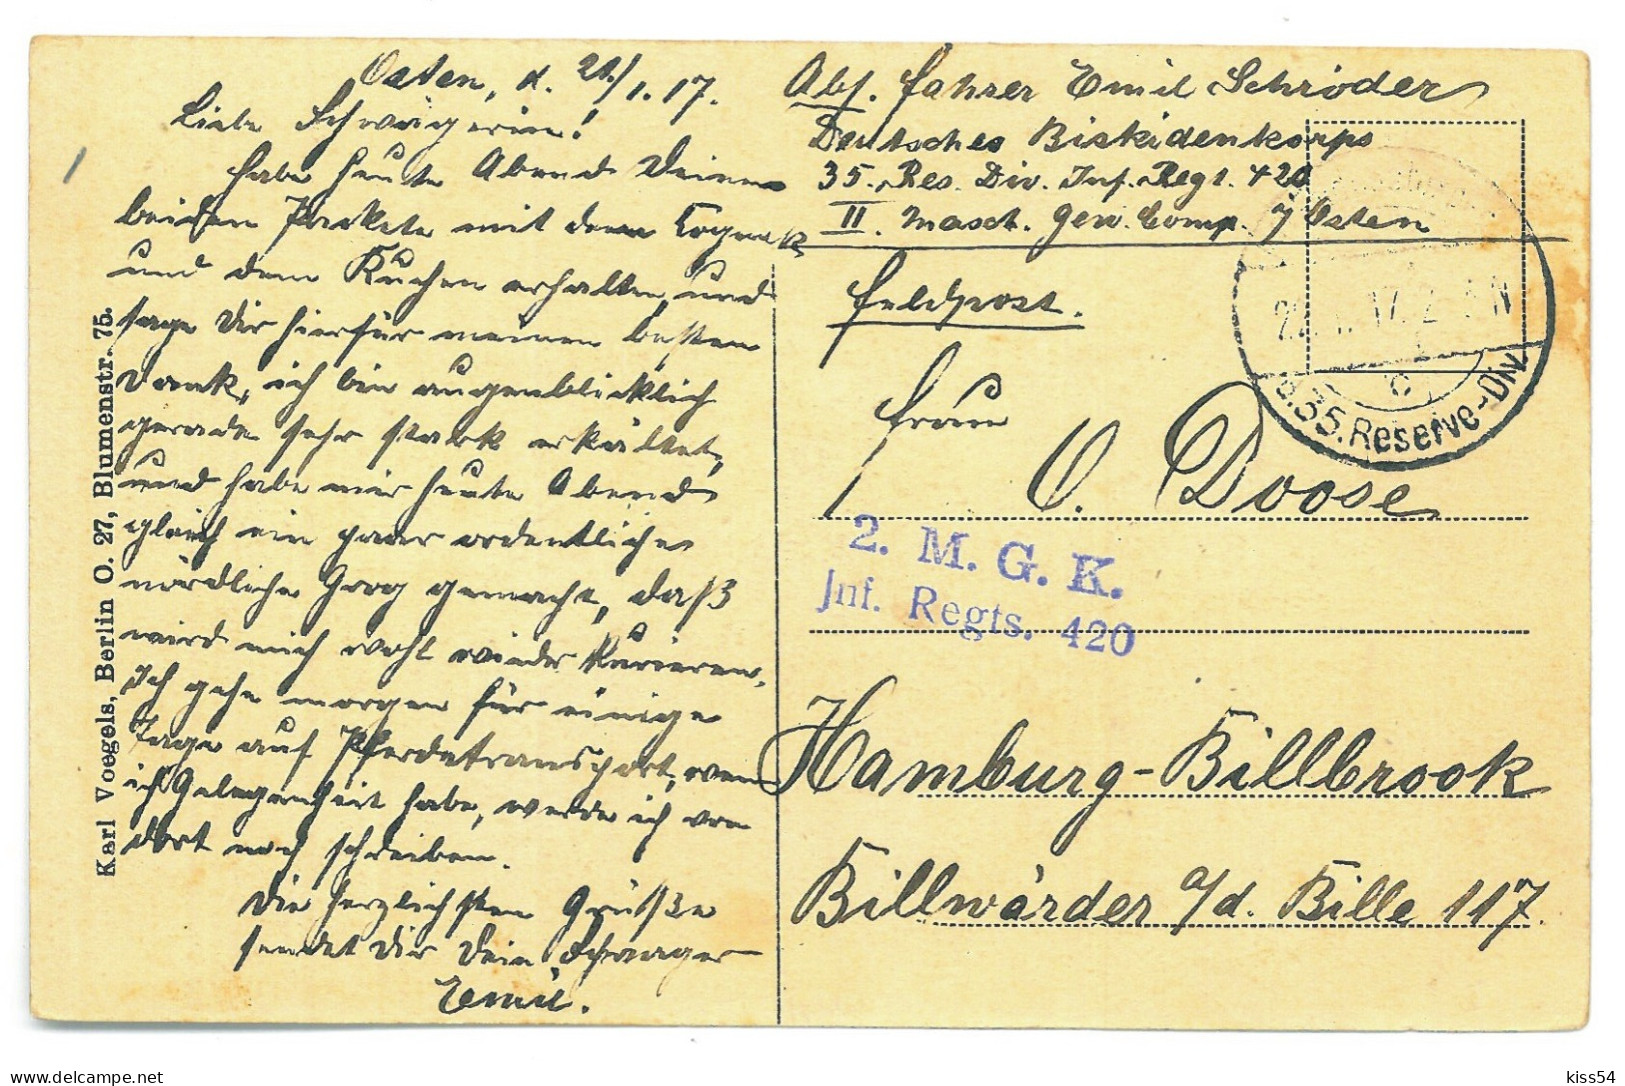 Osten, d. 21./1.17.
Liebe Schwägerin!
Habe heute Abend Deine
beiden Pakete mit dem Cognak
und dem Kuchen erhalten, und
sage Dir hierfür meinen besten
Dank, ich bin augenblicklich
gerade sehr stark erkältet,
und habe mir heute Abend
gleich ein paar ordentliche
nördliche Grog gemacht, daß
wird mich wohl wieder kurieren.
Ich gehe morgen für einige
Tage auf Pferdetransport, wenn
ich Gelegenheit habe, werde ich von
dort noch schreiben.
Die herzlichsten Grüße
sendet Dir Dein Schwager
Emil.
Karl Voegels, Berlin O. 27, Blumenstr. 75.
Abs. Fahrer Emil Schröder
Deutsches Biskidenkorps
35. Res. Div. Inf. Regt. 420
II. Masch. Gew. Comp. Osten
Feldpost.
Frau
O. Doose
2. M. G. K.
Inf. Regts. 420
Hamburg-Billbrook
Billwärder a/d. Bille 117.
d. 35. Reserve-Div.
c
kiss54